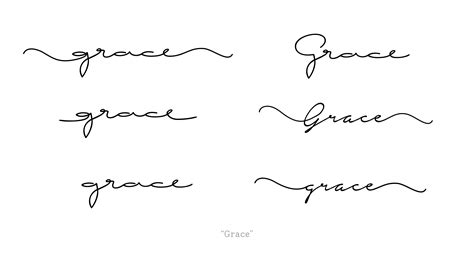 grace Grace
grace Grace
grace grace
"Grace"